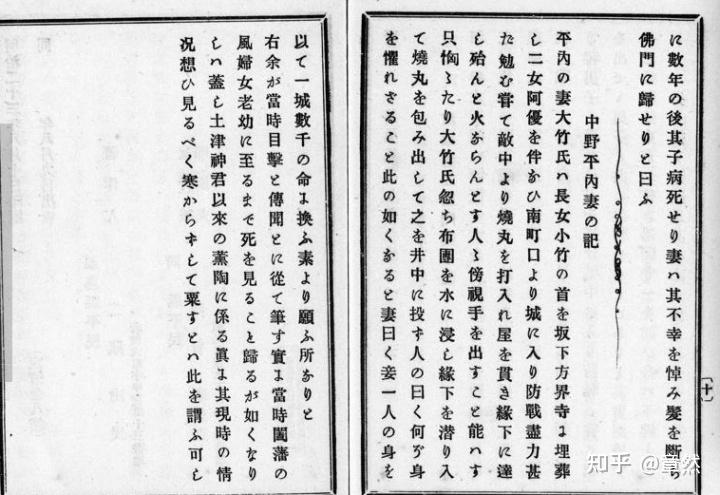 に數年の後其子病死せり妻ハ其不幸を悼み髪を斷ち
佛門に歸せりと曰ふ
中野平內妻の記
平內の妻大竹氏ハ長女小竹の首を坂下方界寺に埋葬
し二女阿優を伴かひ南町口より城に入り防戰盡力甚
た勉む嘗て敵中より燒丸を打入れ屋を貫き緣下に達
し殆んと火からんとす人々傍視手を出すこと能ハす
只恟々たり大竹氏忽ち布團を水に浸し緣下を潜り入
て燒丸を包み出して之を井中に投す人の曰く何ぞ身
を懼れさること此の如くなると妻曰く妾一人の身を
〔十〕
以て一城數千の命に換ふ素より願ふ所なりと
右余が當時目擊と傳聞とに從て筆す實に當時闔藩の
風婦女老幼に至るまで死を見ること歸るが如くなり
しハ蓋し土津神君以來の薰陶に係る眞に其現時の情
況想ひ見るべく寒からずして粟すとハ此を謂ふ可し
知乎 @童然